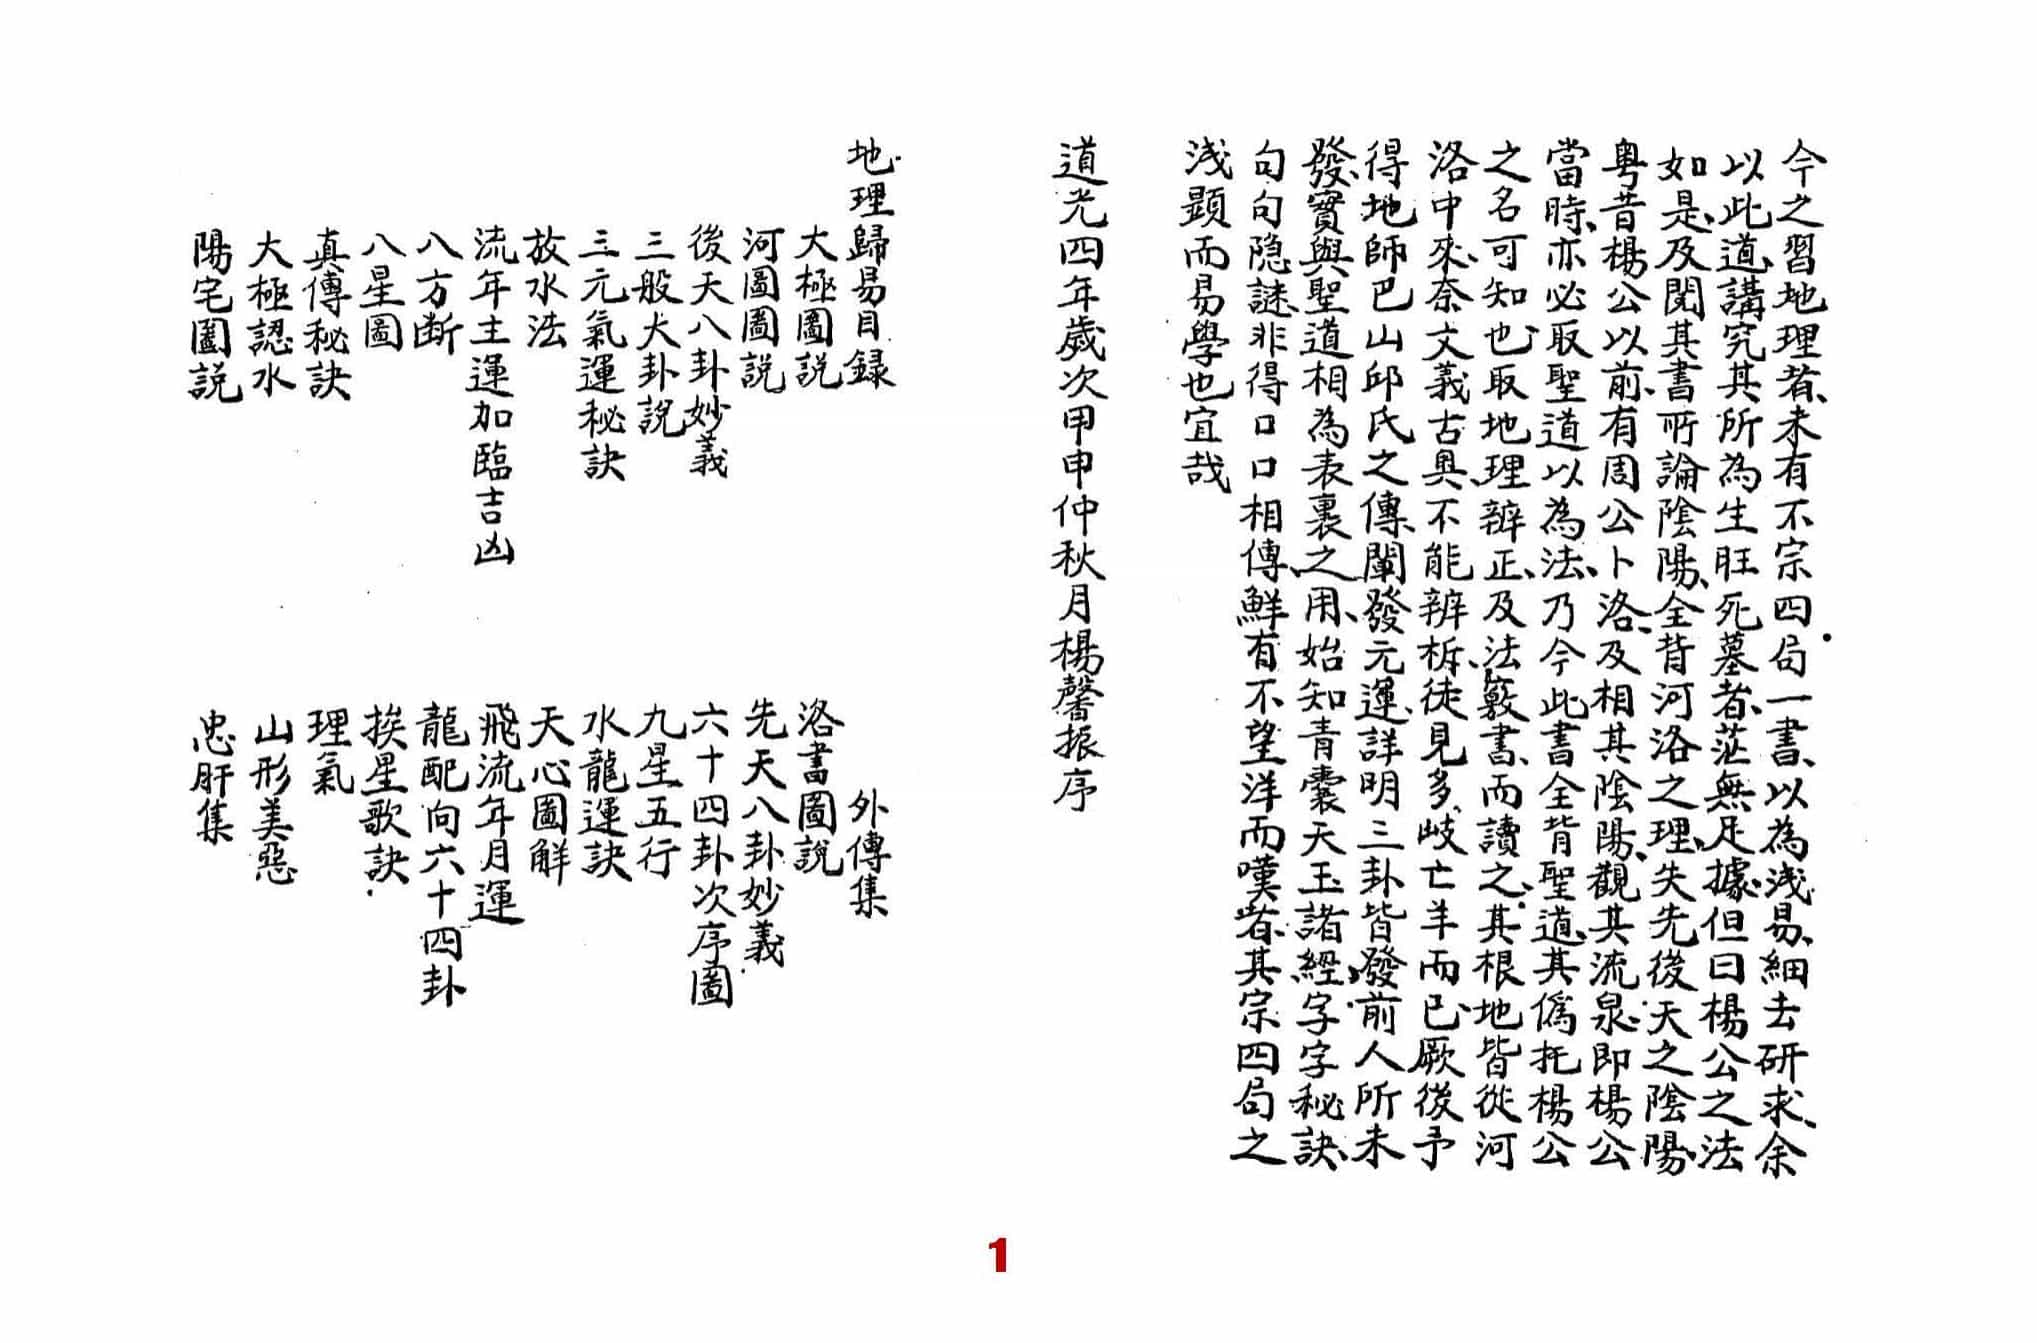 今之習地理者、未有不宗四局一書、以為浅易、細去研求、余
以此道、講究其所為生旺死墓者、茫無足據、但曰楊公之法
如是、及閱其書所論陰陽、全背河洛之理、失先後天之陰陽、
粤昔楊公以前、有周公卜洛、及相其陰陽、觀其流泉、即楊公
當時、亦必取聖道以為法、乃今此書全背聖道、其偽托楊公
之名可知也、取地理辨正、及法藪書、而讀之、其根地皆從河
洛中來、奈文義古奧、不能辨析、徒見多岐亡羊而已、厥後予
得地師巴山邱氏之傳、闡發元運、詳明三卦、皆發前人所未
發、實與聖道相為表裏之用、始知青囊天玉諸經、字字秘訣、
句句隐謎、非得口口相傳、鮮有不望洋而嘆者、其宗四局之
浅顕而易學也宜哉
道光四年歲次甲申仲秋月楊馨振序
地理歸易目録 外傳集
大極圖説 洛書圖説
河圖圖説 先天八卦妙義
後天八卦妙義 六十四卦次序圖
三般大卦說 九星五行
三元氣運秘訣 水龍運訣
放水法 天心圖解
流年主運加臨吉凶 飛流年月運
八方断 龍配向六十四卦
八星圖 挨星歌訣
真傳秘訣 理氣
大極認水 山形美惡
陽宅圖説 忠肝集
1